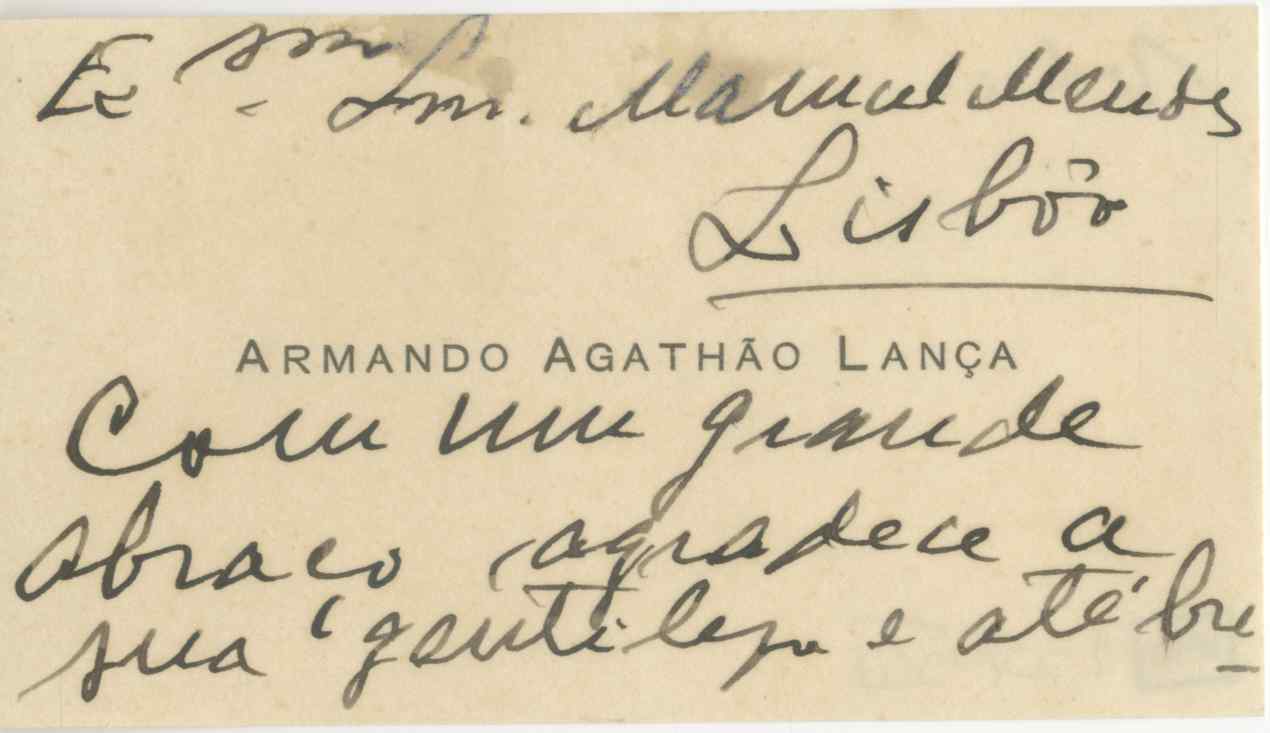 Exmº Snr. Manuel Mendes
Lisbôa
ARMANDO AGATHÃO LANÇA
Com um grande
abraço agradece a
sua gentileza e até bre